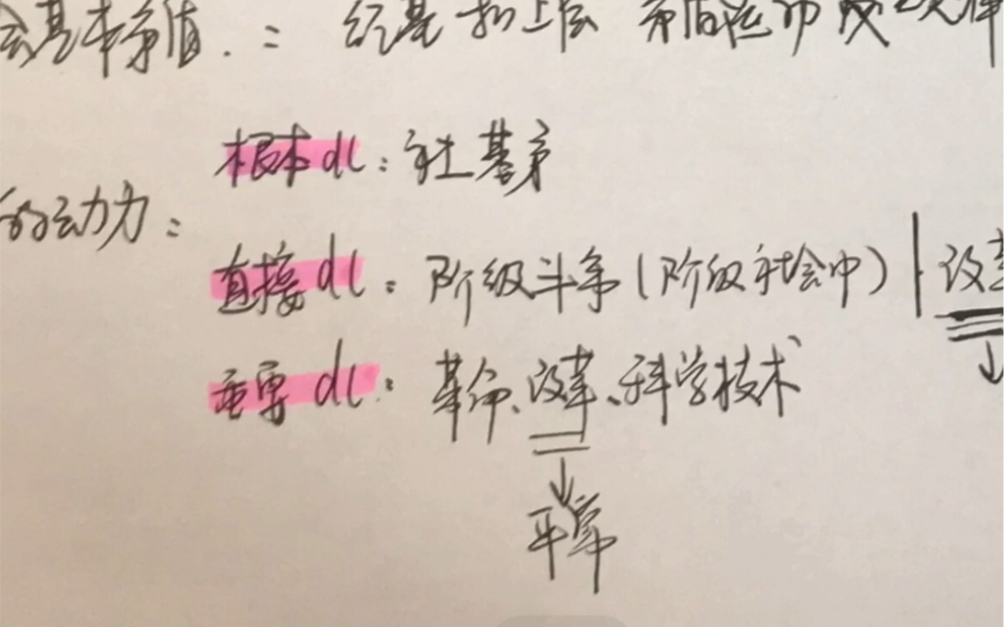 会基本矛盾.：经基和上层 矛盾运
根本dl：社基矛
的动力：
直接dl：阶级斗争(阶级社会中) 改
重要dl：革命、改革、科学技术
平常